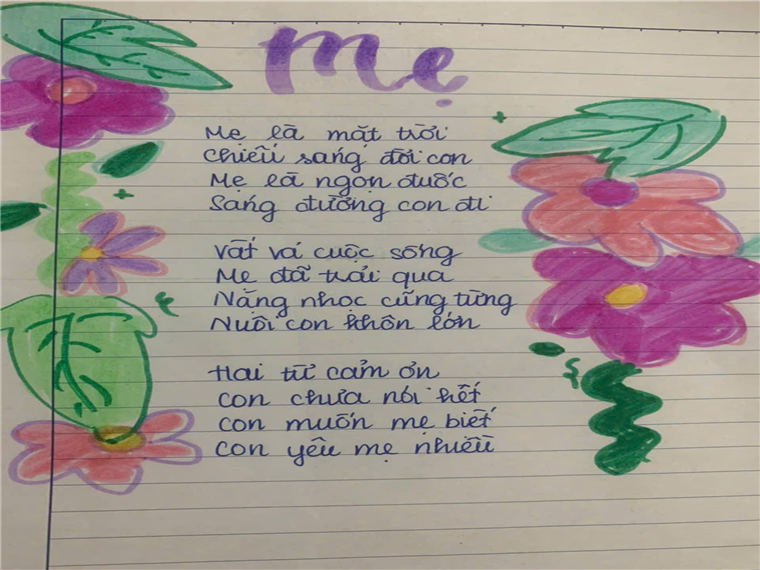 Mẹ
Mẹ là mặt trời
Chiếu sáng đời con
Mẹ là ngọn đuốc
Sáng đường con đi
Vất vả cuộc sống
Mẹ đã trải qua
Nặng nhọc cũng từng
Nuôi con khôn lớn
Hai từ cảm ơn
Con chưa nói hết
Con muốn mẹ biết
Con yêu mẹ nhiều